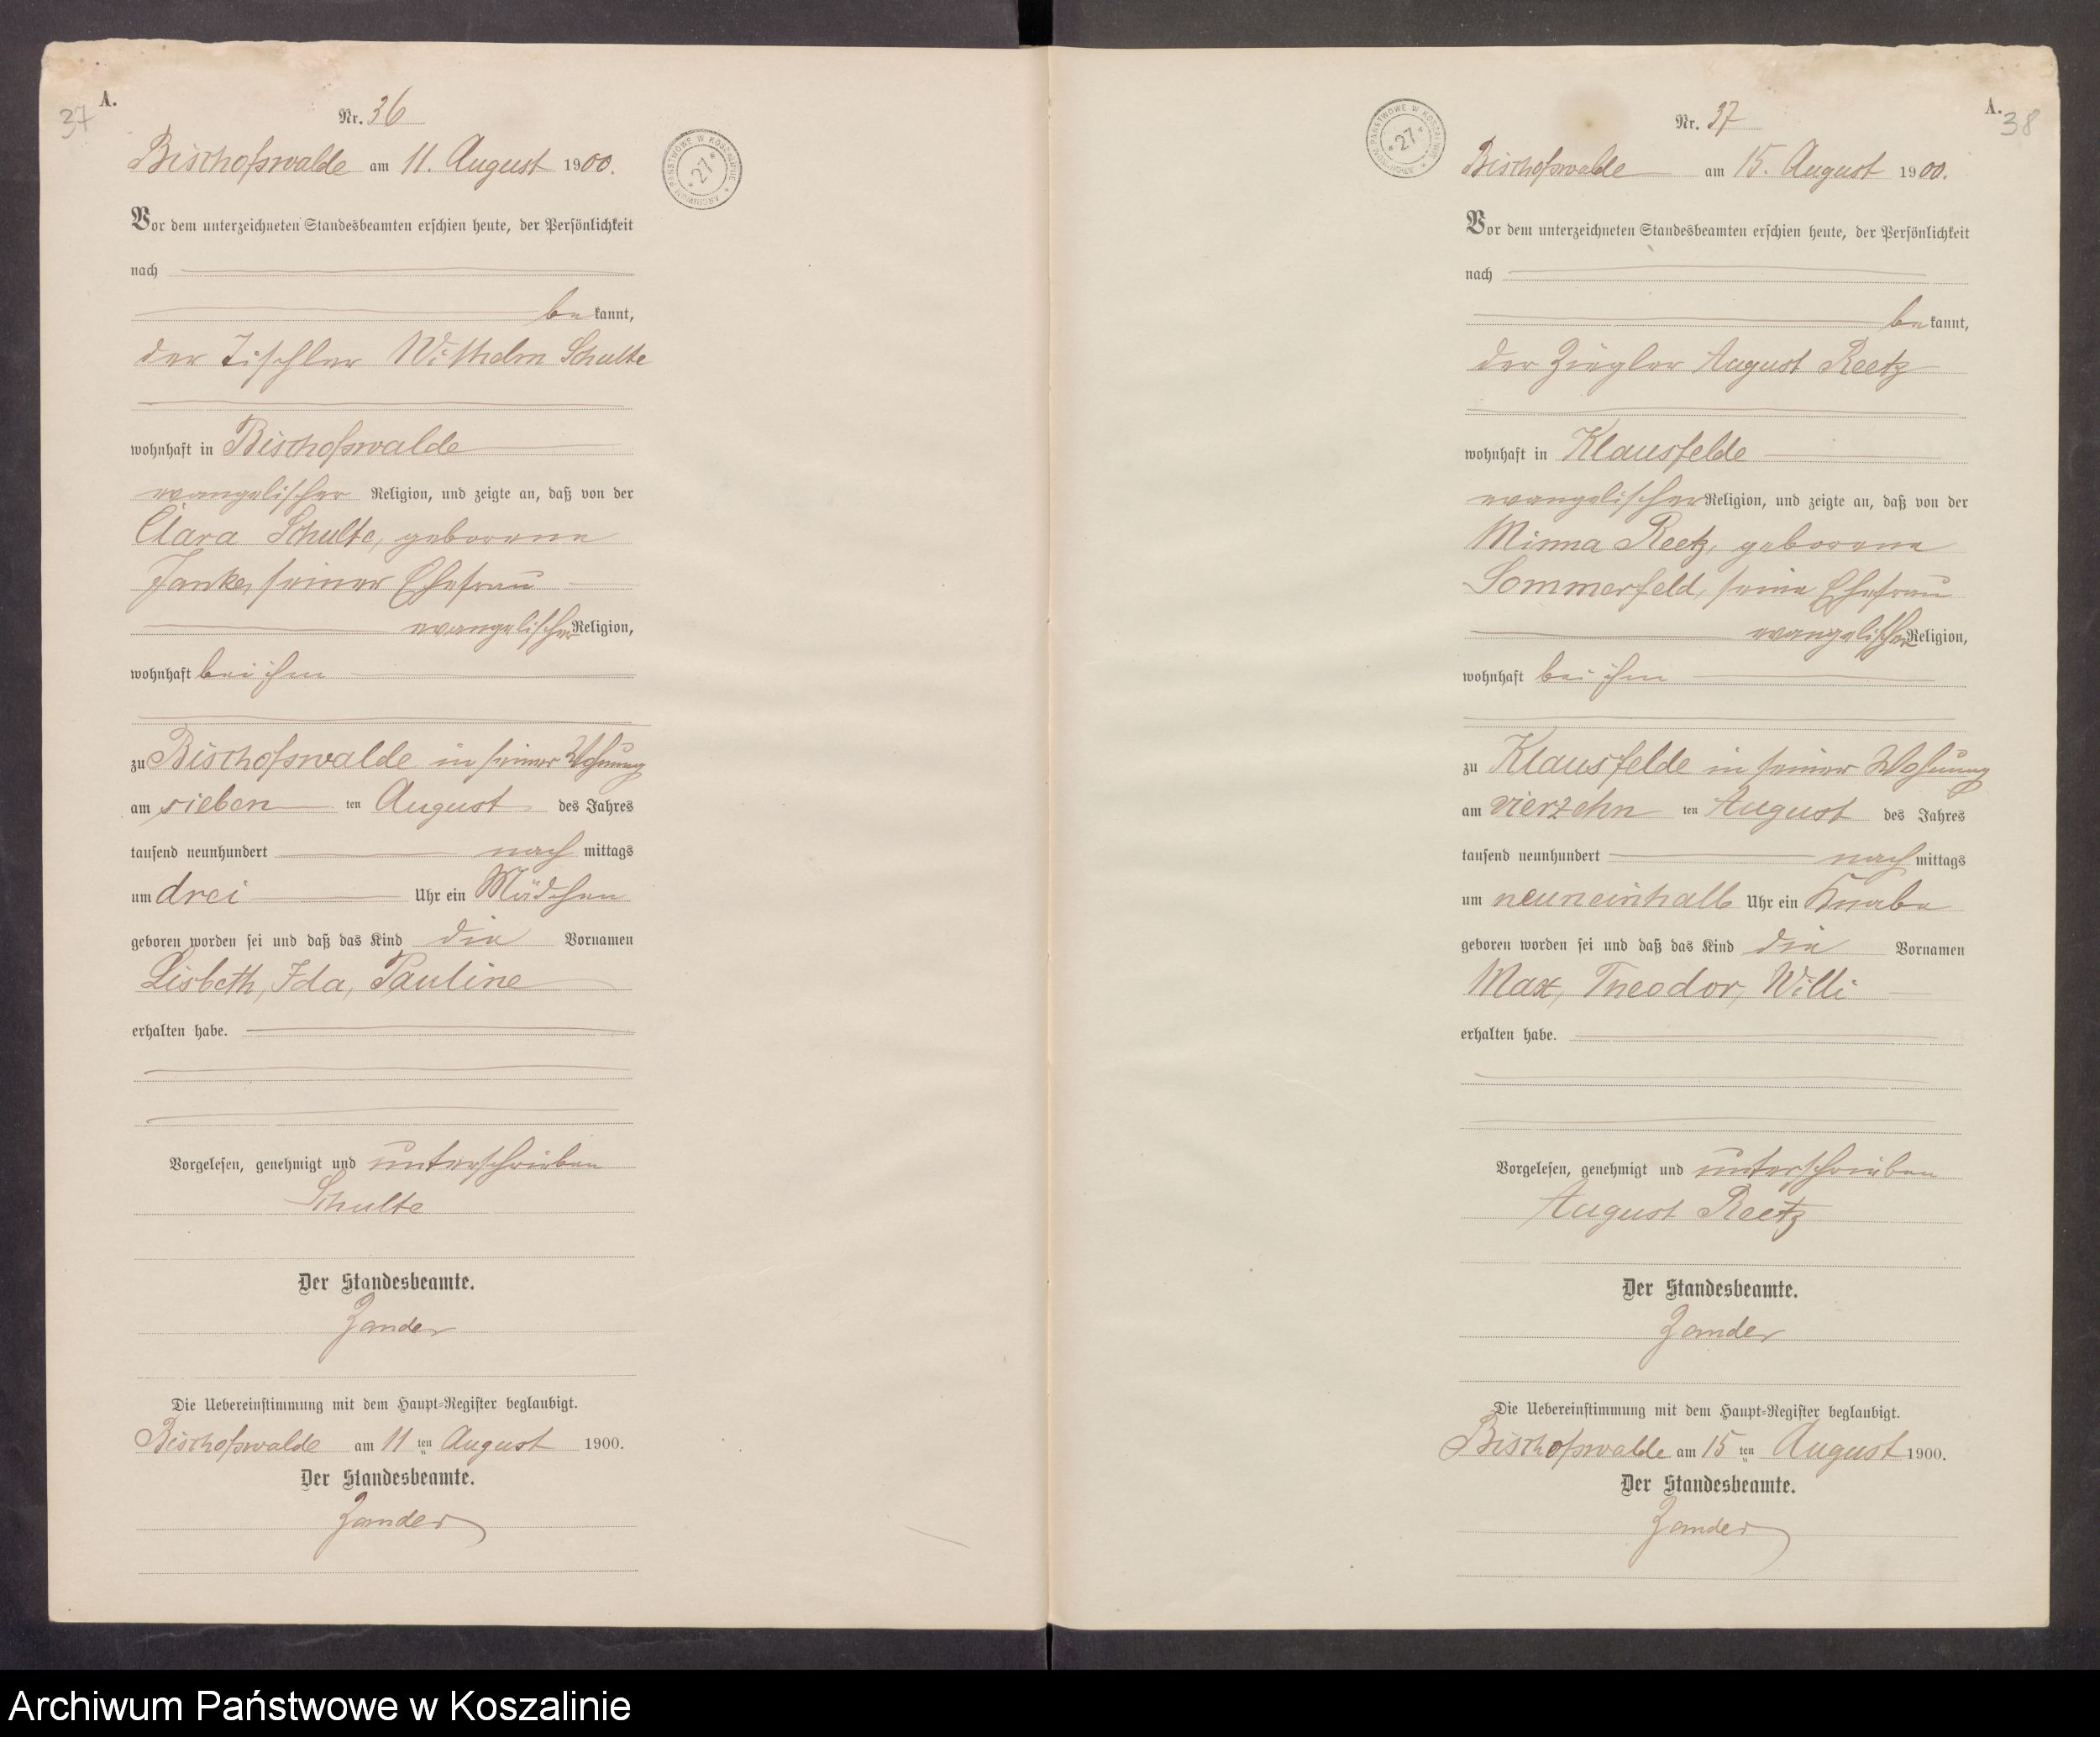 37
A.
Nr. 36
Bischofswalde am 11. August 1900.
ARCHIWUM PAŃSTWOWE W KOSZALINIE * 27 *
Vor dem unterzeichneten Standesbeamten erschien heute, der Persönlichkeit
nach
bekannt,
der Tischler Wilhelm Schulte
wohnhaft in Bischofswalde
evangelischer Religion, und zeigte an, daß von der
Clara Schulte, geborene
Janke, seiner Ehefrau
evangelischer Religion,
wohnhaft bei ihm
zu Bischofswalde in seiner Wohnung
am sieben ten August des Jahres
tausend neunhundert nach mittags
um drei Uhr ein Mädchen
geboren worden sei und daß das Kind die Vornamen
Lisbeth, Ida, Pauline
erhalten habe.
Vorgelesen, genehmigt und unterschrieben
Schulte
Der Standesbeamte.
Zander
Die Uebereinstimmung mit dem Haupt-Register beglaubigt.
Bischofswalde am 11 ten August 1900.
Der Standesbeamte.
Zander
A.
38
Nr. 37
ARCHIWUM PAŃSTWOWE W KOSZALINIE * 27 *
Bischofswalde am 15. August 1900.
Vor dem unterzeichneten Standesbeamten erschien heute, der Persönlichkeit
nach
bekannt,
der Ziegler August Reetz
wohnhaft in Klausfelde
evangelischer Religion, und zeigte an, daß von der
Minna Reetz, geborene
Sommerfeld, seine Ehefrau
evangelischer Religion,
wohnhaft bei ihm
zu Klausfelde in seiner Wohnung
am vierzehn ten August des Jahres
tausend neunhundert nach mittags
um neuneinhalb Uhr ein Knabe
geboren worden sei und daß das Kind die Vornamen
Max, Theodor, Willi
erhalten habe.
Vorgelesen, genehmigt und unterschrieben
August Reetz
Der Standesbeamte.
Zander
Die Uebereinstimmung mit dem Haupt-Register beglaubigt.
Bischofswalde am 15 ten August 1900.
Der Standesbeamte.
Zander
Archiwum Państwowe w Koszalinie